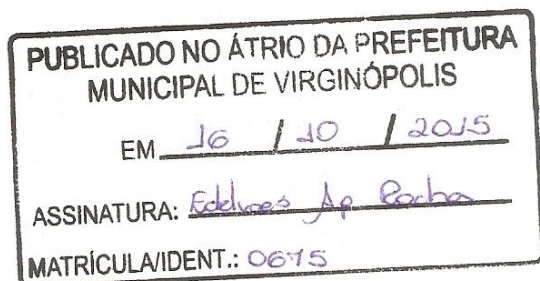 PUBLICADO NO ÁTRIO DA PREFEITURA
MUNICIPAL DE VIRGINÓPOLIS
EM 16 / 10 / 2015
ASSINATURA: Ap Rocha
MATRÍCULA/IDENT.: 0675